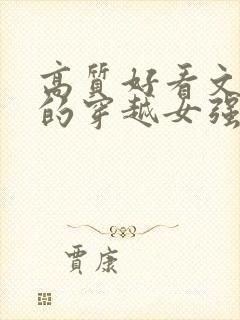 高質好看文
的穿越女强
賈康